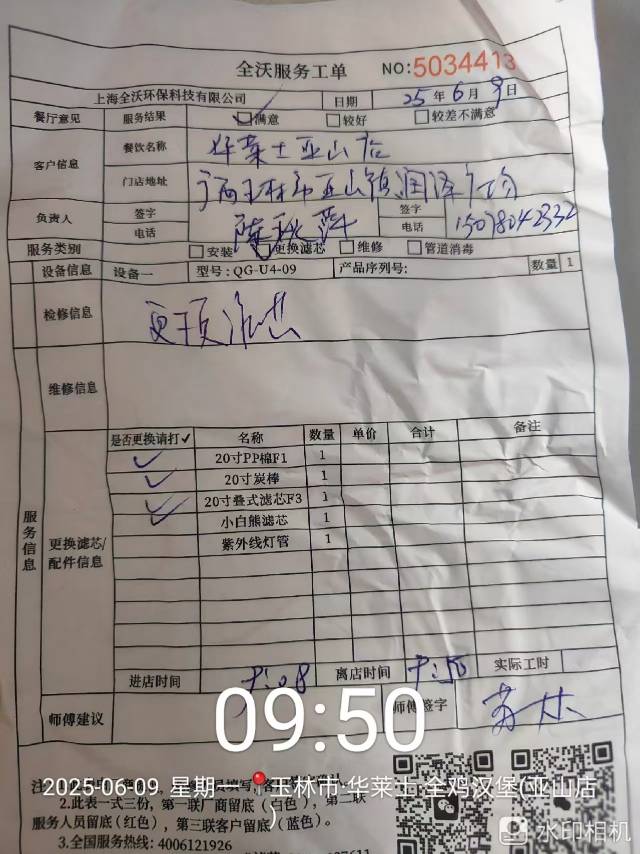 全沃服务工单 NO:5034413
上海全沃环保科技有限公司 日期 25年6月9日
餐厅意见 服务结果 满意 较好 较差不满意
客户信息 餐饮名称 华莱士亚山店
门店地址 广西玉林市亚山镇润泽广场
负责人 签字 签字
电话 电话 15078042332
服务类别 安装 更换滤芯 维修 管道消毒
设备信息 设备一 型号:QG-U4-09 产品序列号: 数量 1
检修信息 更换滤芯
维修信息
服务信息
更换滤芯/配件信息
是否更换请打✓ 名称 数量 单价 合计 备注
✓ 20寸PP棉F1 1
✓ 20寸炭棒 1
✓ 20寸叠式滤芯F3 1
✓ 小白熊滤芯 1
紫外线灯管 1
进店时间 9:08 离店时间 9:50 实际工时
师傅建议 师傅签字
09:50
2025-06-09 星期一 玉林市·华莱士·全鸡汉堡(亚山店)
2.此表一式三份，第一联厂商留底（白色），第二联
服务人员留底(红色)，第三联客户留底（蓝色）。
3.全国服务热线: 4006121926
水印相机